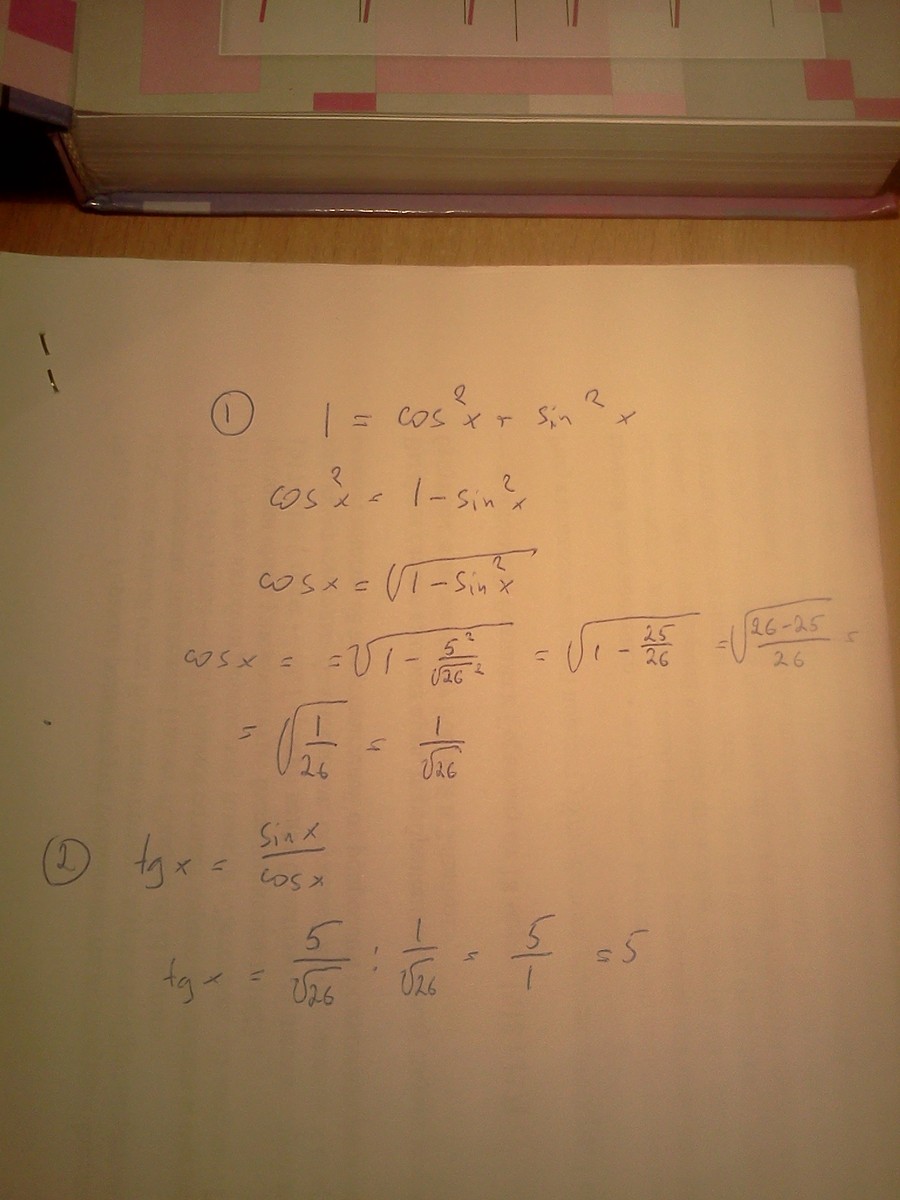 ① 1 = cos²x + sin²x
cos²x = 1 - sin²x
cosx = √(1 - sin²x)
cosx = = √(1 - 5²/√26²) = √(1 - 25/26) = √((26-25)/26) =
= √(1/26) = 1/√26
② tgx = sinx/cosx
tgx = 5/√26 : 1/√26 = 5/1 = 5